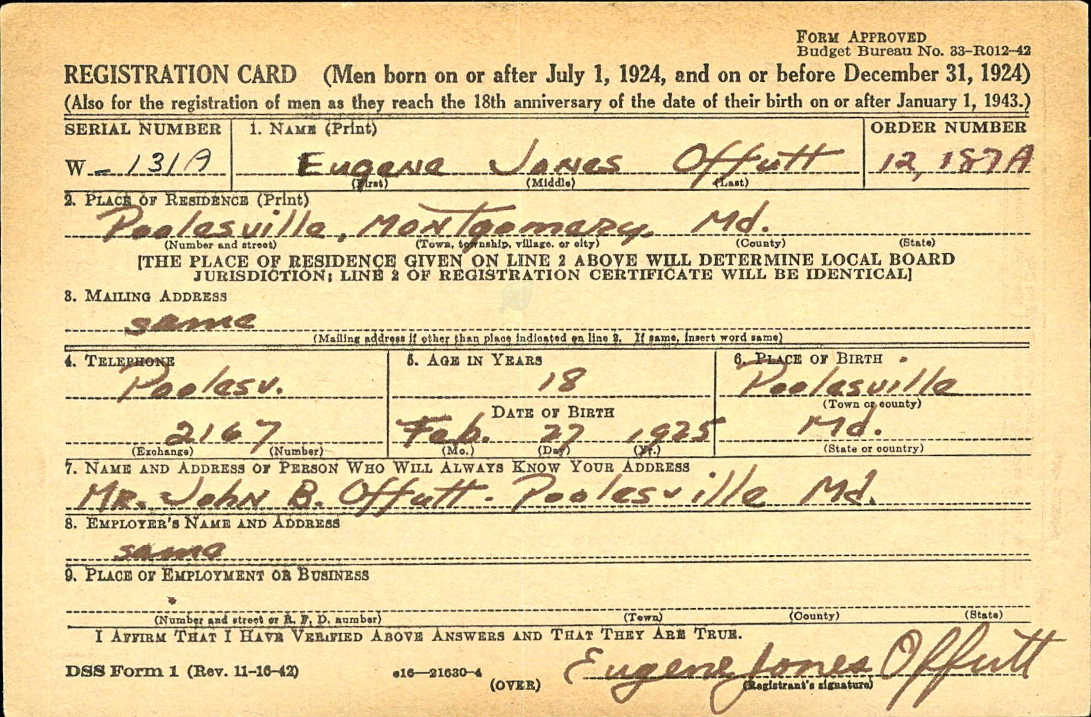 FORM APPROVED
Budget Bureau No. 33-R012-42
REGISTRATION CARD (Men born on or after July 1, 1924, and on or before December 31, 1924)
(Also for the registration of men as they reach the 18th anniversary of the date of their birth on or after January 1, 1943.)
SERIAL NUMBER 1. NAME (Print) ORDER NUMBER
W - 131A Eugene Jones Offutt 12,187A
(First) (Middle) (Last)
2. PLACE OF RESIDENCE (Print)
Poolesville, Montgomery Md.
(Number and street) (Town, township, village, or city) (County) (State)
[THE PLACE OF RESIDENCE GIVEN ON LINE 2 ABOVE WILL DETERMINE LOCAL BOARD
JURISDICTION; LINE 2 OF REGISTRATION CERTIFICATE WILL BE IDENTICAL]
3. MAILING ADDRESS
same
(Mailing address if other than place indicated on line 2. If same, insert word same)
4. TELEPHONE 5. AGE IN YEARS 6. PLACE OF BIRTH
Poolesv. 18 Poolesville
DATE OF BIRTH (Town or county)
2167 Feb. 27 1925 Md.
(Exchange) (Number) (Mo.) (Day) (Yr.) (State or country)
7. NAME AND ADDRESS OF PERSON WHO WILL ALWAYS KNOW YOUR ADDRESS
Mr. John B. Offutt. Poolesville Md.
8. EMPLOYER'S NAME AND ADDRESS
same
9. PLACE OF EMPLOYMENT OR BUSINESS
(Number and street or R. F. D. number) (Town) (County) (State)
I AFFIRM THAT I HAVE VERIFIED ABOVE ANSWERS AND THAT THEY ARE TRUE.
DSS Form 1 (Rev. 11-16-42) e16-21630-4 (OVER) Eugene Jones Offutt
(Registrant's signature)